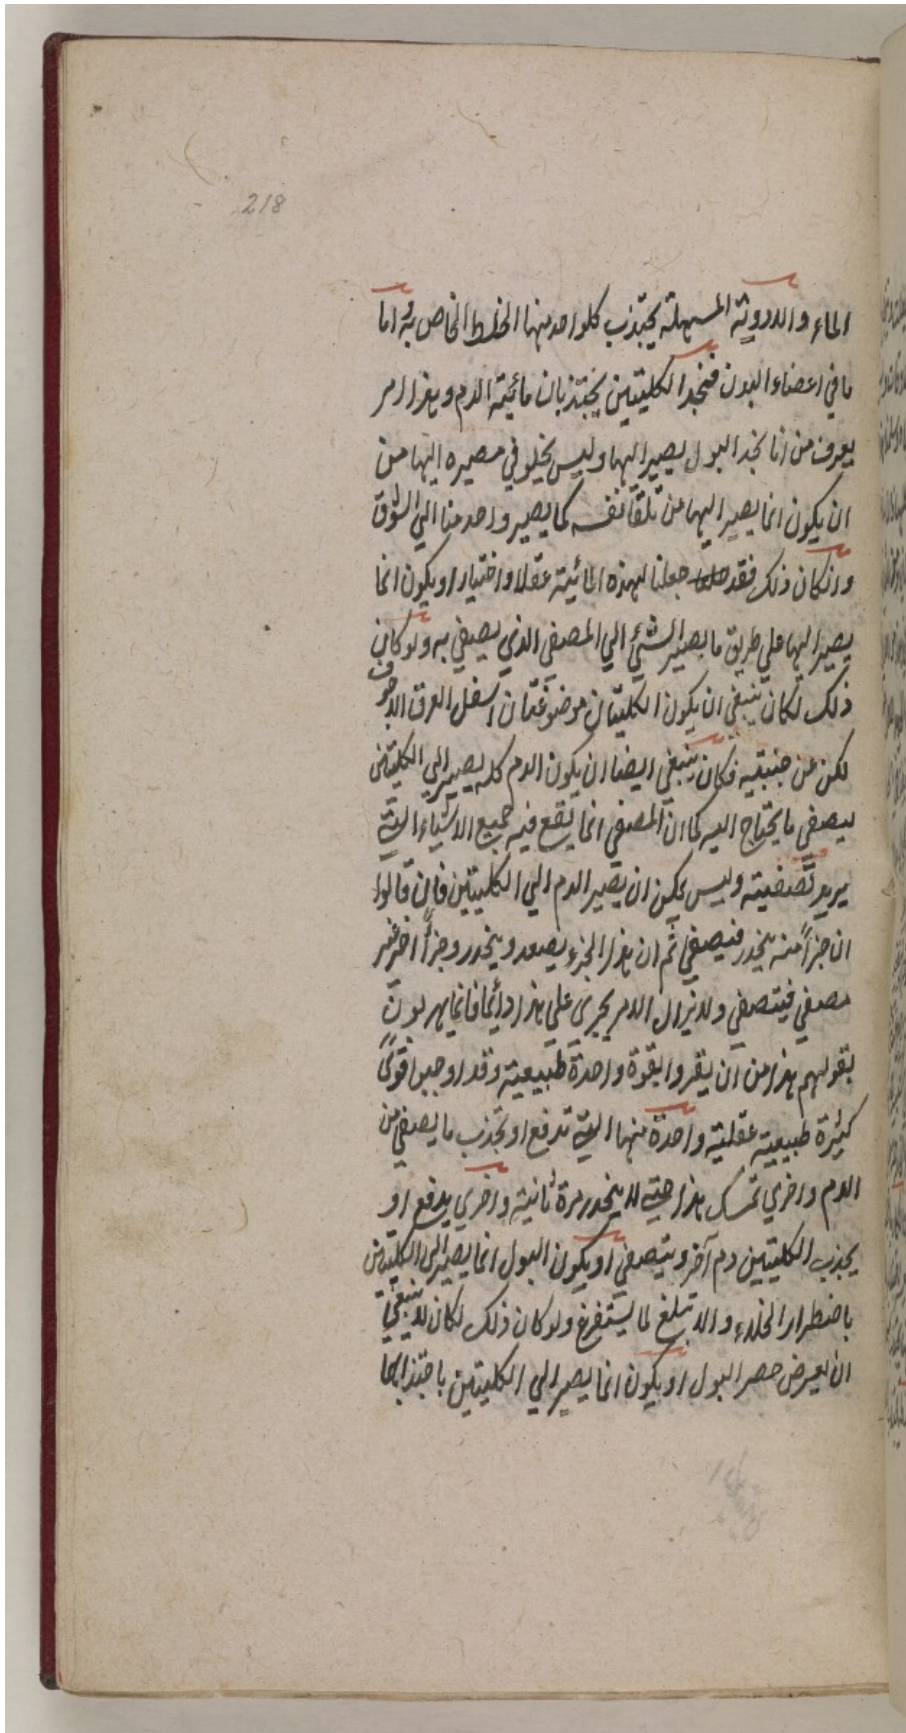 218
الماء والادوية المسهلة يجتذب كلواحد منها الخلط الخاص به واما
ما في اعضاء البدن فنجد الكليتين يجتذبان مائية الدم وهذا امر
يعرف من انا نجد البول يصير اليها وليس يخلو في مصيره اليها من
ان يكون انما يصير اليها من تلقا نفسه كما يصير واحد منا الي السوق
وان كان ذلك فقد جعلنا لهذه المائية عقلا واختيارا ويكون انما
يصير اليها علي طريق ما يصير الشئ الي المصفي الذي يصفي به ولو كان
ذلك لكان ينبغي ان يكون الكليتان موضوعتان اسفل العرق الاجوف
لكن عن جنبتيه فكان ينبغي ايضا ان يكون الدم كله يصير الي الكليتين
ليصفي ما يحتاج اليه كما ان المصفي انما يقع فيه جميع الاشياء التي
يريد تصفيته وليس يمكن ان يصير الدم الي الكليتين فان قالوا
ان جزأً منه ينحدر فيصفي ثم ان هذا الجزء يصعد وينحدر وجزأً اخر غير
مصفي فيتصفي ولا يزال الامر يجري علي هذا دائما فانما يهربون
بقولهم هذا من ان يقروا بقوة واحدة طبيعية وقد اوجبوا قوىً
كثيرة طبيعية عقلية واحدة منها التي تدفع او تجذب ما يصفي من
الدم واخري تمسك هذا حتي لا ينحدر مرة ثانية واخري يدفع او
يجذب الكليتين دم آخر ويتصفي او يكون البول انما يصير الي الكليتين
باضطرار الخلاء والا تبلغ لما يستفرغ ولو كان ذلك لكان لا ينبغي
ان يعرض حصر البول او يكون انما يصير الي الكليتين باجتذابها